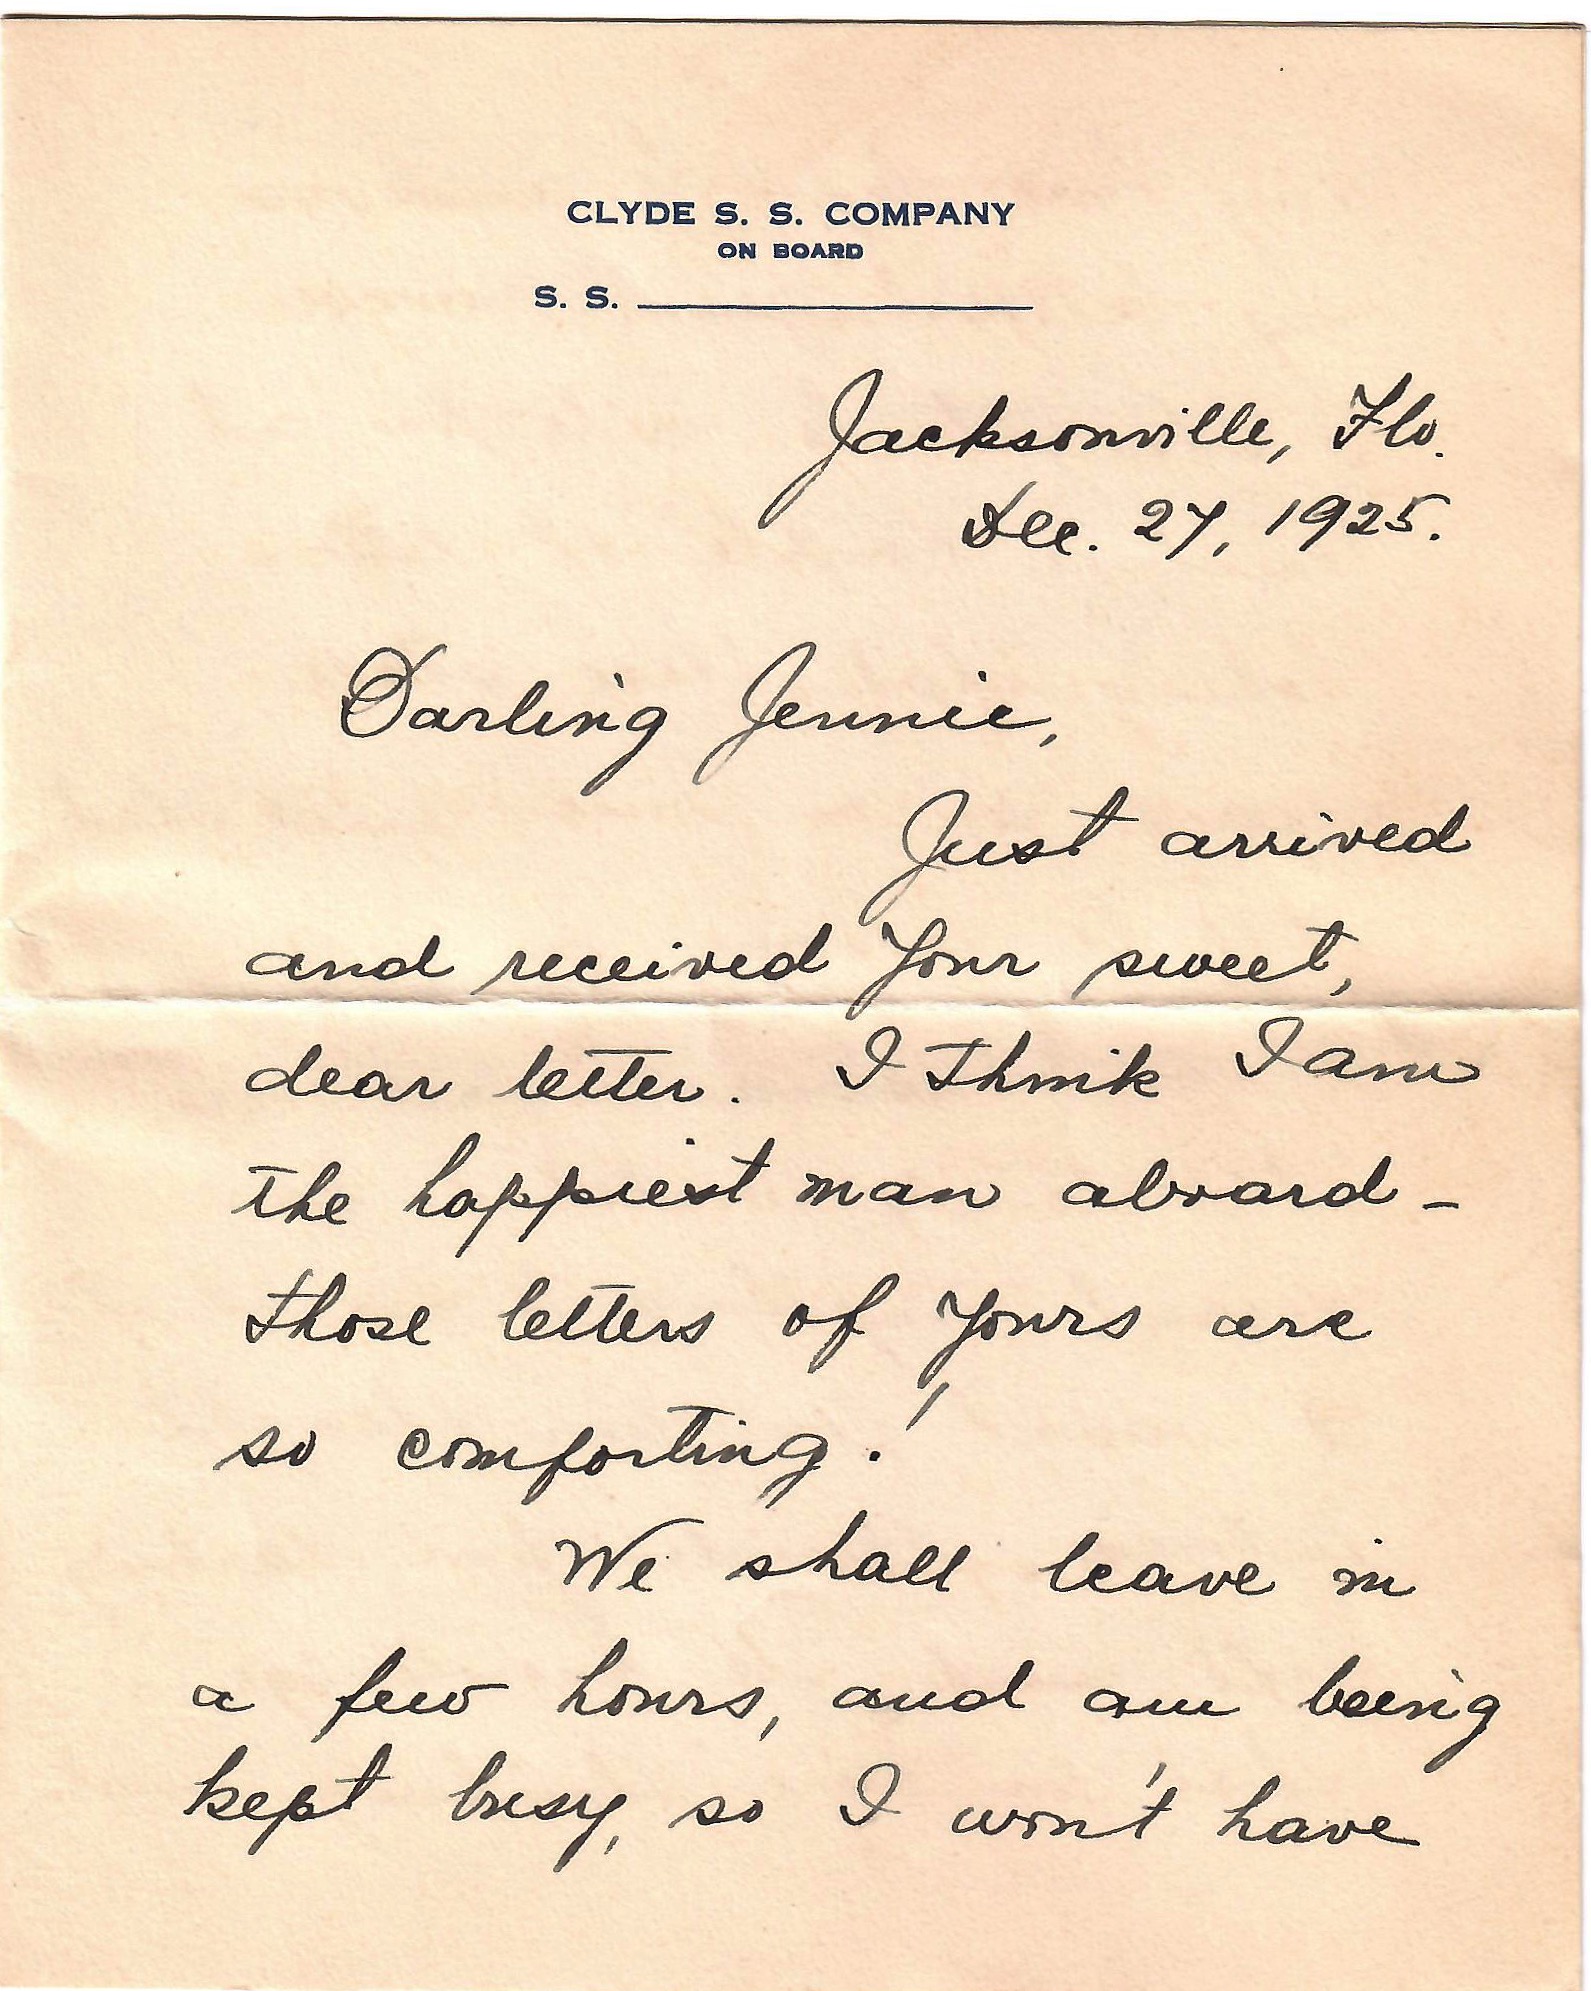 CLYDE S. S. COMPANY
ON BOARD
S. S.
Jacksonville, Fla.
Dec. 27, 1925.
Darling Jennie,
Just arrived
and received your sweet,
dear letter. I think I am
the happiest man aboard -
those letters of yours are
so comforting!
We shall leave in
a few hours, and am being
kept busy, so I won't have